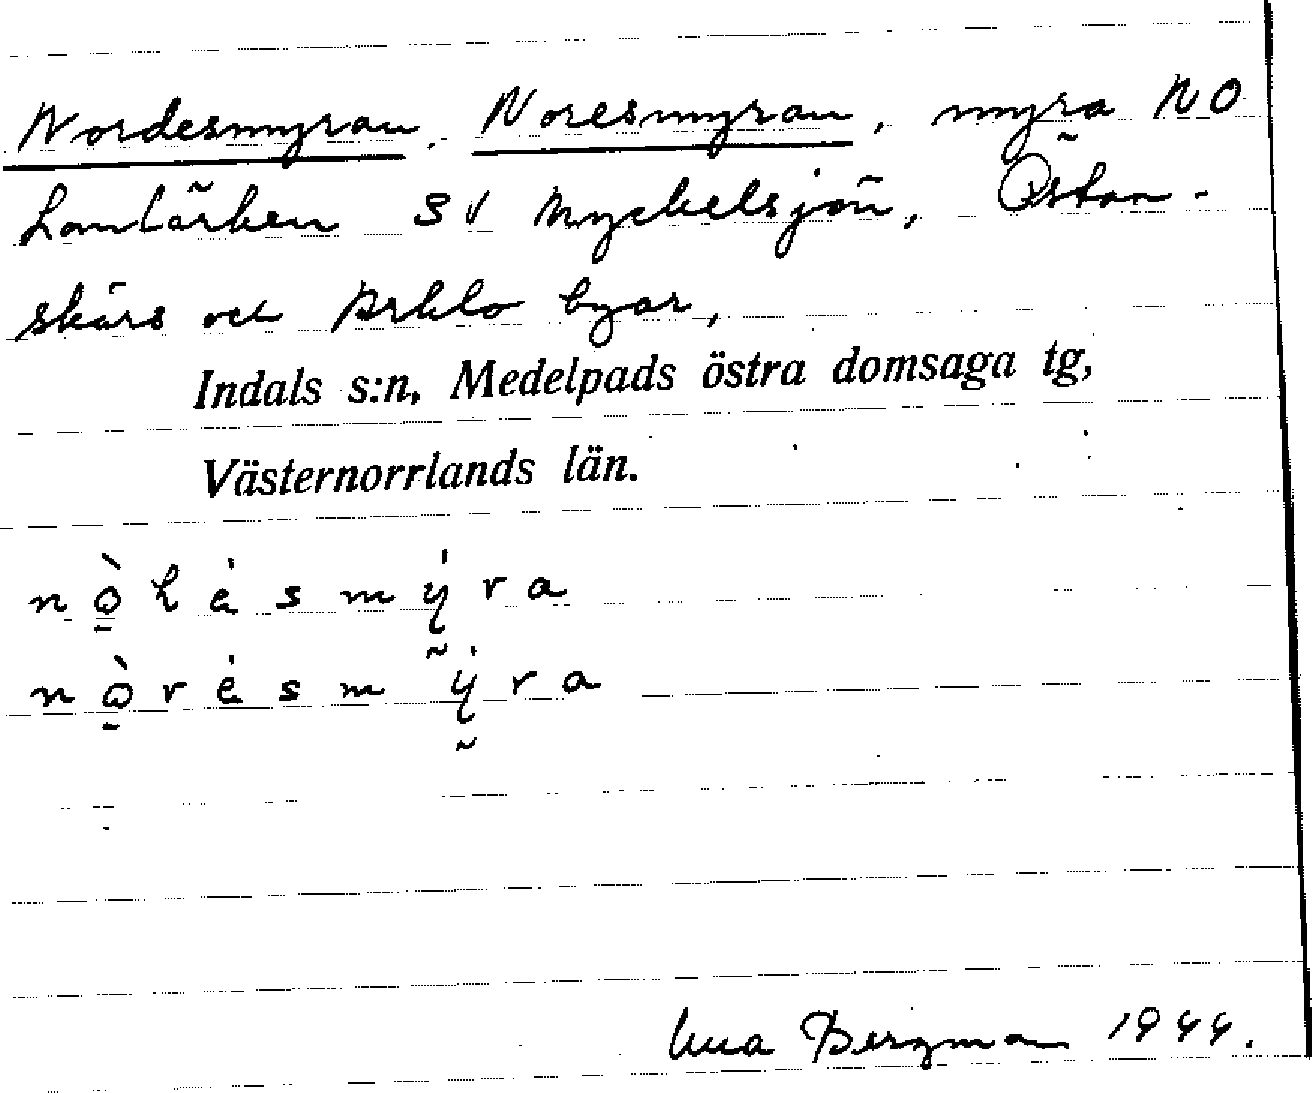 Nordesmyran, Noresmyran, myra NO
Lomtärken SV Myckelsjön, Östan-
skärs och Arklo byar,
Indals s:n, Medelpads östra domsaga tg,
Västernorrlands län.
nò̱ L ė s m ẏ r a
nò̱ r ė s m ẏ r a
Bergman 1944.